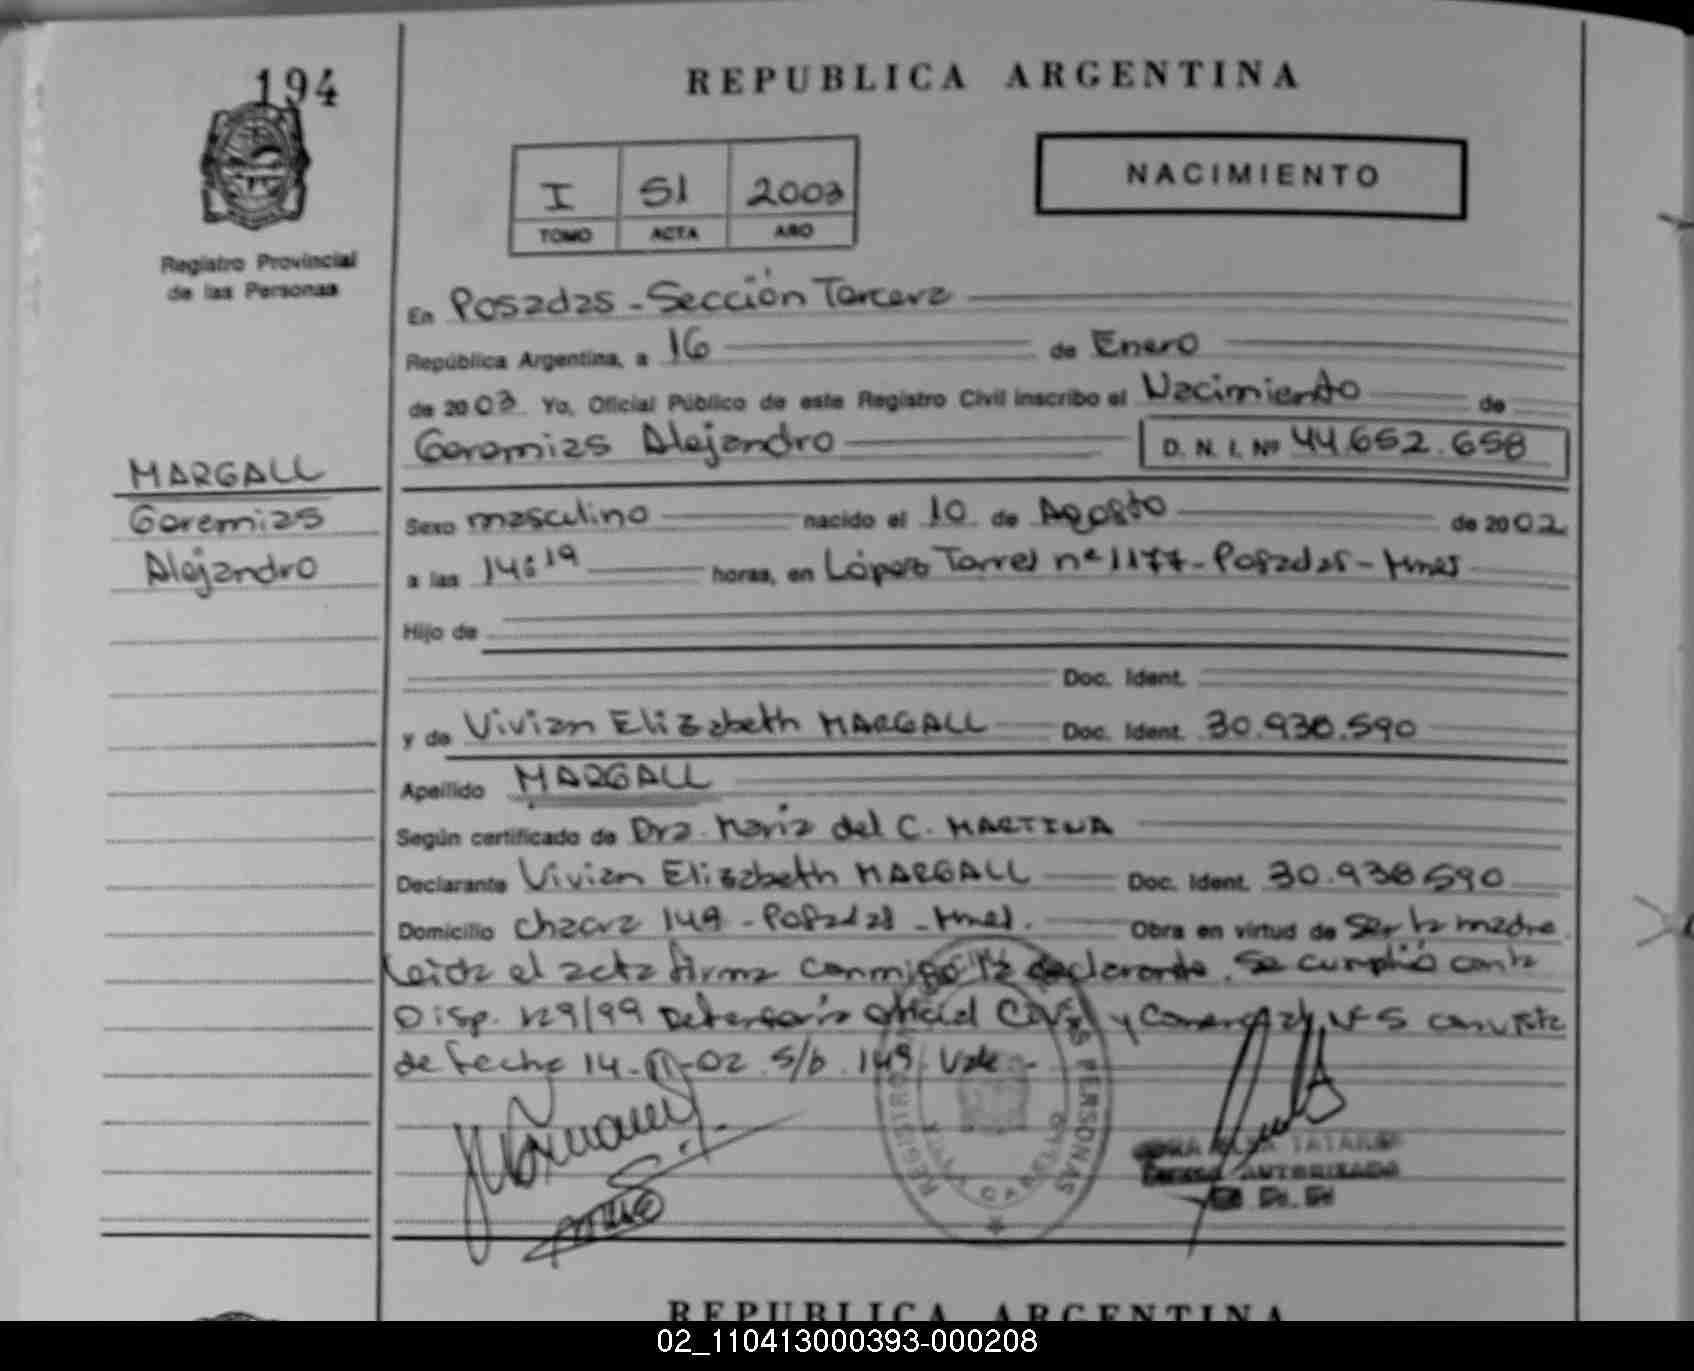 194
REPUBLICA ARGENTINA
NACIMIENTO
I 51 2003
TOMO ACTA AÑO
Registro Provincial
de las Personas
En Posadas - Sección Tercera
República Argentina, a 16 de Enero
de 2003 Yo, Oficial Público de este Registro Civil inscribo el Nacimiento de
Geremias Alejandro D. N. I. Nº 44.652.658
MARGALL
Geremias
Alejandro
Sexo masculino nacido el 10 de Agosto de 2002
a las 14:19 horas, en López Torres nº 1177 - Posadas - Mnes
Hijo de
Doc. Ident.
y de Vivian Elizabeth MARGALL Doc. Ident. 30.938.590
Apellido MARGALL
Según certificado de Dra. Maria del C. MARTINA
Declarante Vivian Elizabeth MARGALL Doc. Ident. 30.938.590
Domicilio Chacra 149 - Posadas - Mnes. Obra en virtud de Ser la madre.
Leida el acta firma conmigo la declarante. Se cumplió con la
Disp. 129/99 Defensoría Oficial Civil y Comercial Nº 5 con vista
de fecha 14-11-02 S/b 149. Vale.-
REGISTRO PERSONAS
AUTORIZADA
REPUBLICA ARGENTINA
02_110413000393-000208